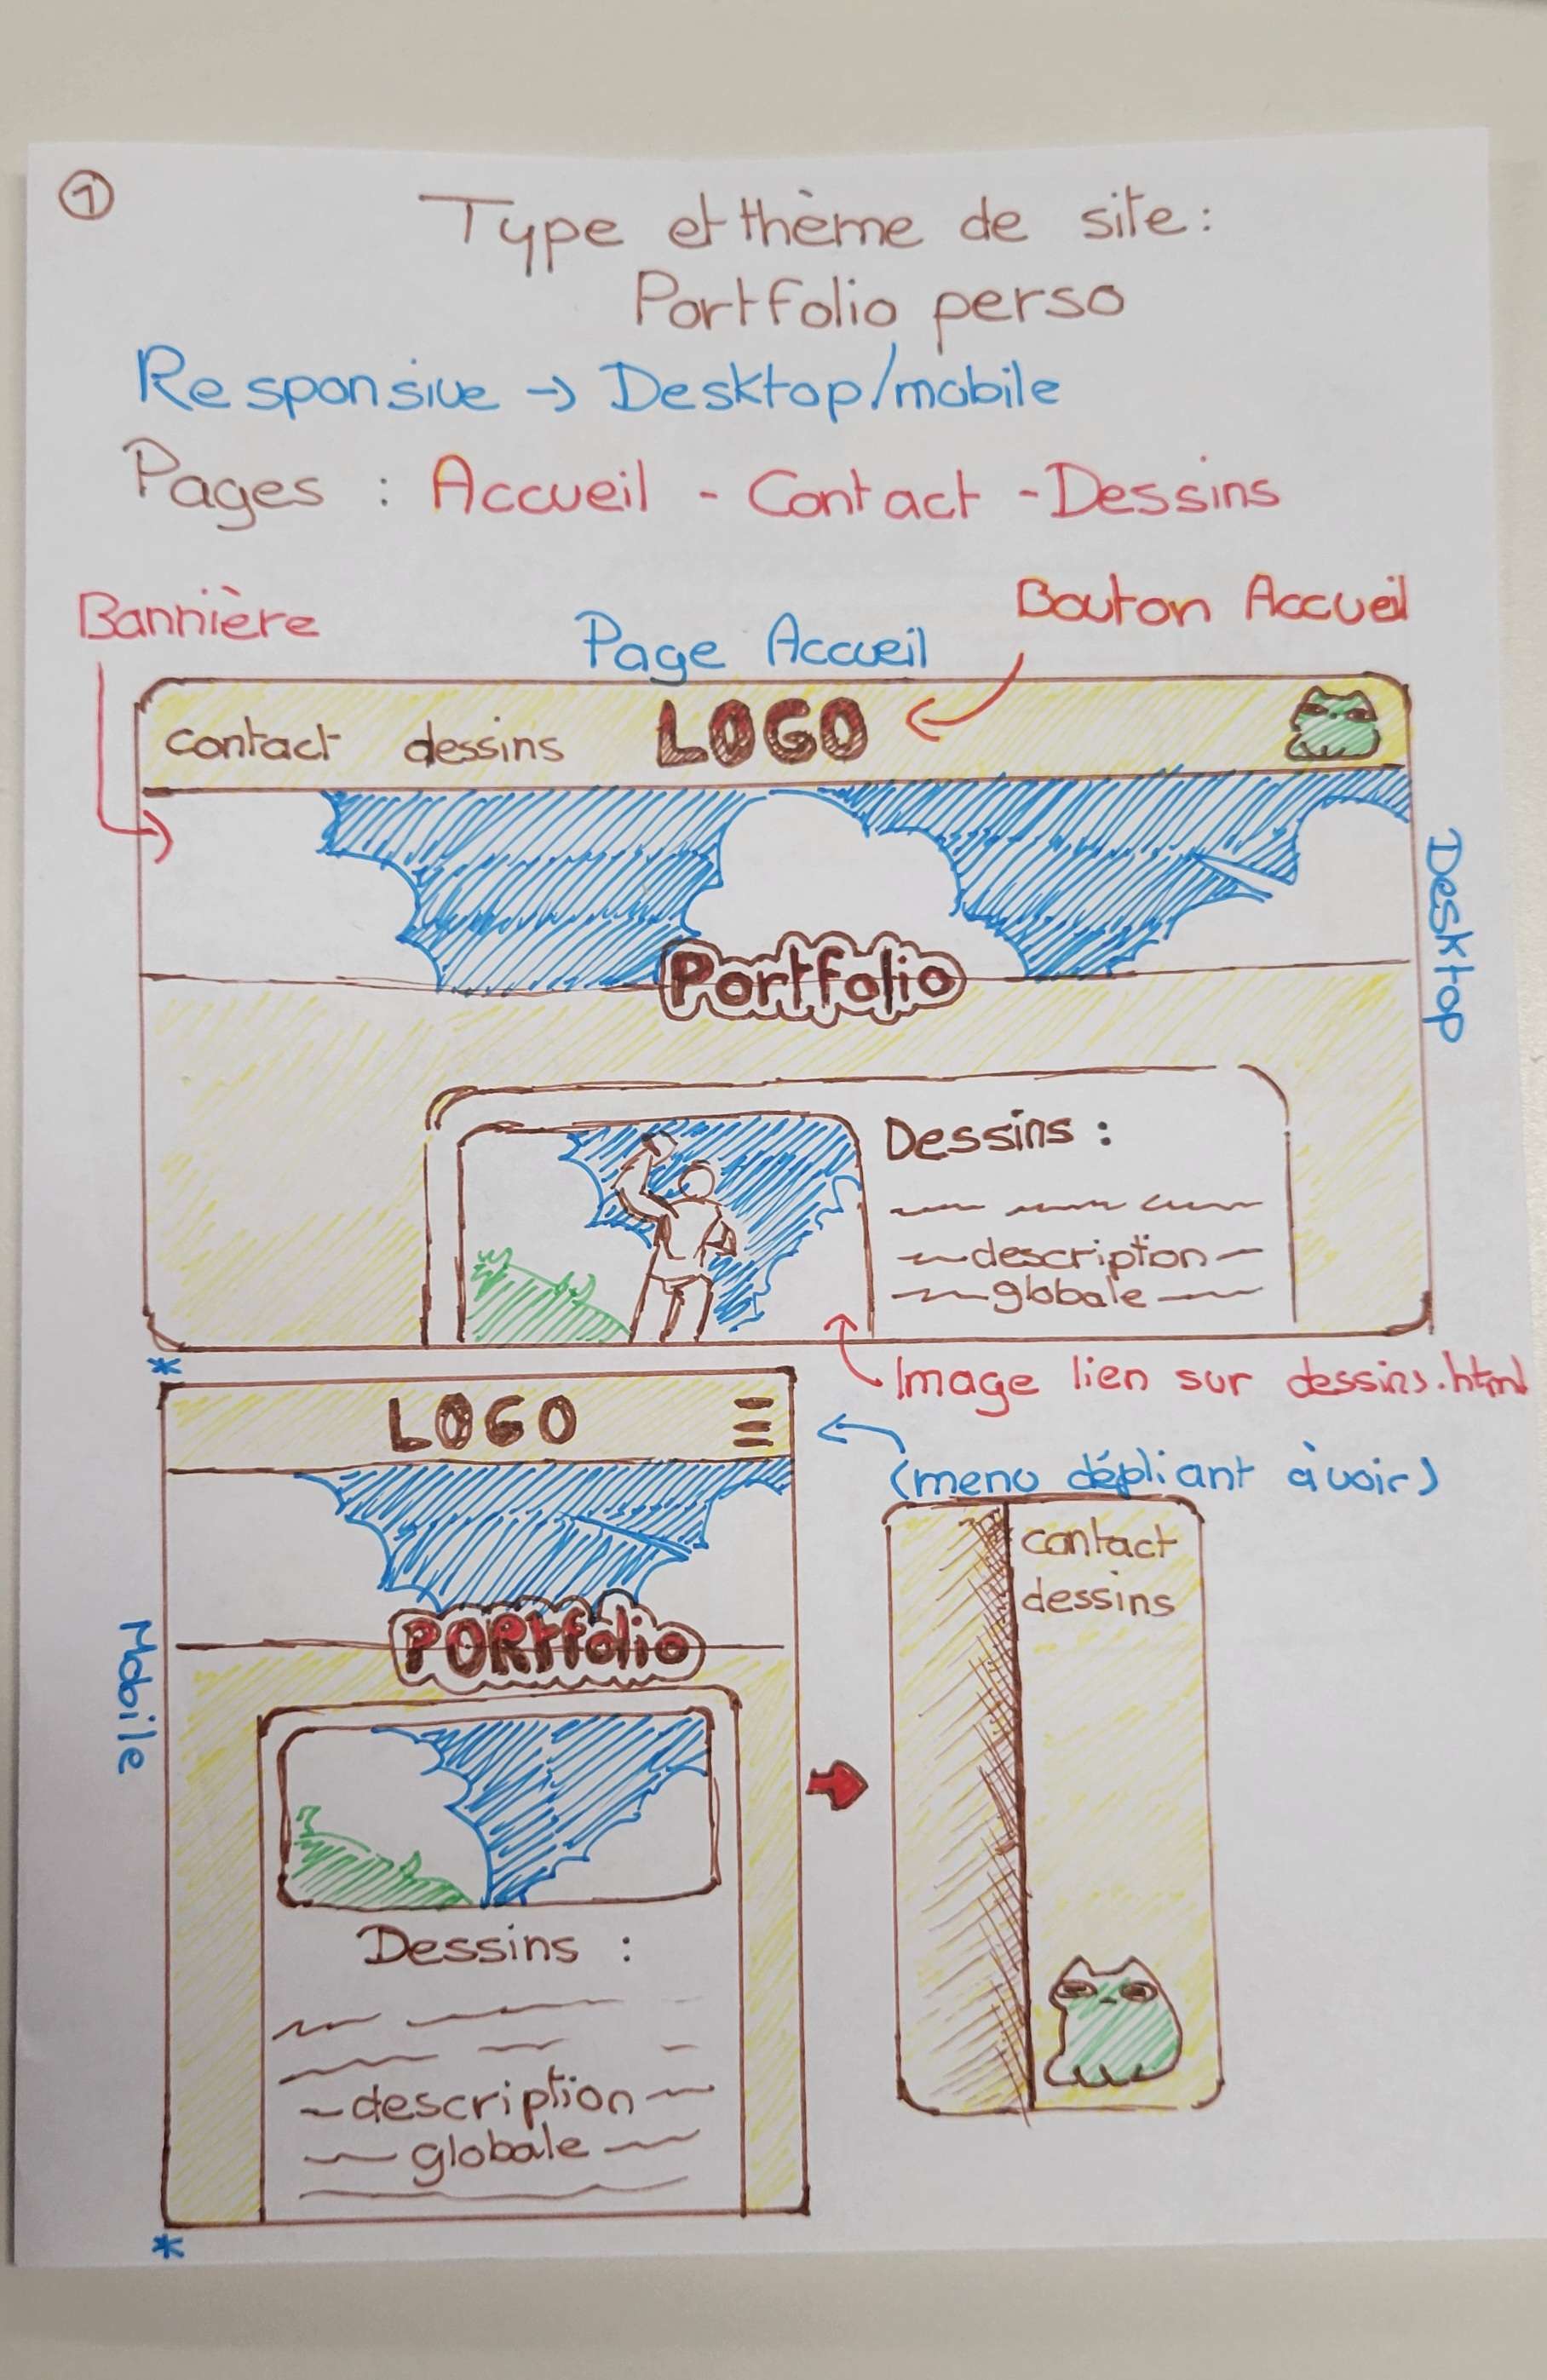 1
Type et thème de site:
Portfolio perso
Responsive → Desktop/mobile
Pages : Accueil - Contact - Dessins
Bannière
Page Accueil
Bouton Accueil
contact dessins LOGO
Portfolio
Desktop
Dessins :
description
globale
*
Image lien sur dessins.html
LOGO
(menu dépliant à voir)
PORtfolio
Mobile
contact
dessins
Dessins :
description
globale
*